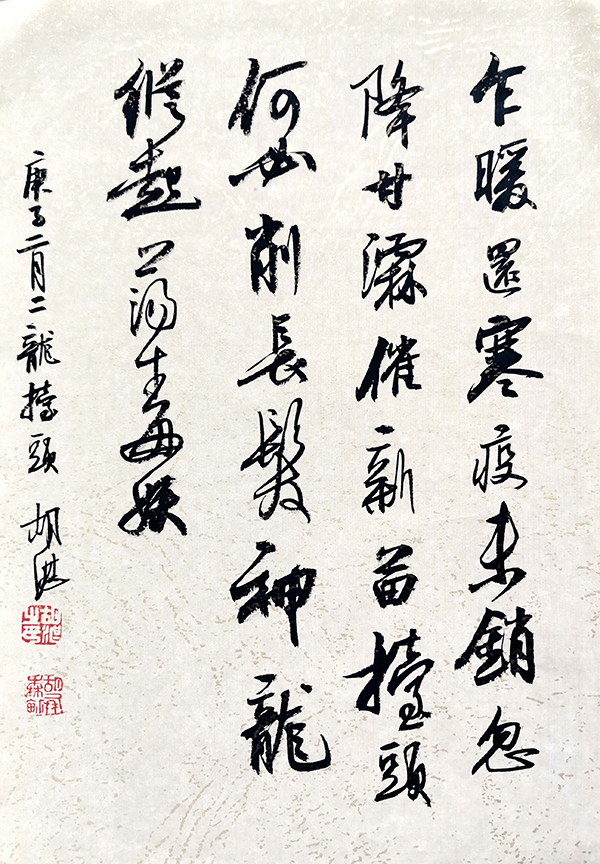 乍暖還寒疫未銷忽
降甘霖催新苗擡頭
何必削長髮神龍
縱起蕩毒妖
庚子二月二龍擡頭 胡